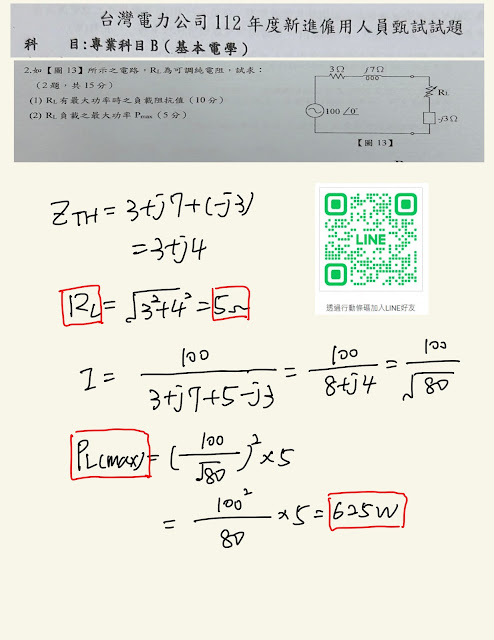 台灣電力公司 112 年度新進僱用人員甄試試題
科 目：專業科目 B（基本電學）
2.如【圖 13】所示之電路，RL 為可調純電阻，試求：
（2 題，共 15 分）
(1) RL 有最大功率時之負載阻抗值（10 分）
(2) RL 負載之最大功率 Pmax（5 分）
3Ω j7Ω
RL
100 ∠0°
-j3Ω
【圖 13】
ZTH = 3+j7+(-j3)
= 3+j4
LINE
透過行動條碼加入LINE好友
RL = √3²+4² = 5Ω
I = 100 / 3+j7+5-j3 = 100 / 8+j4 = 100 / √80
PL(max) = (100 / √80)² × 5
= 100² / 80 × 5 = 625W